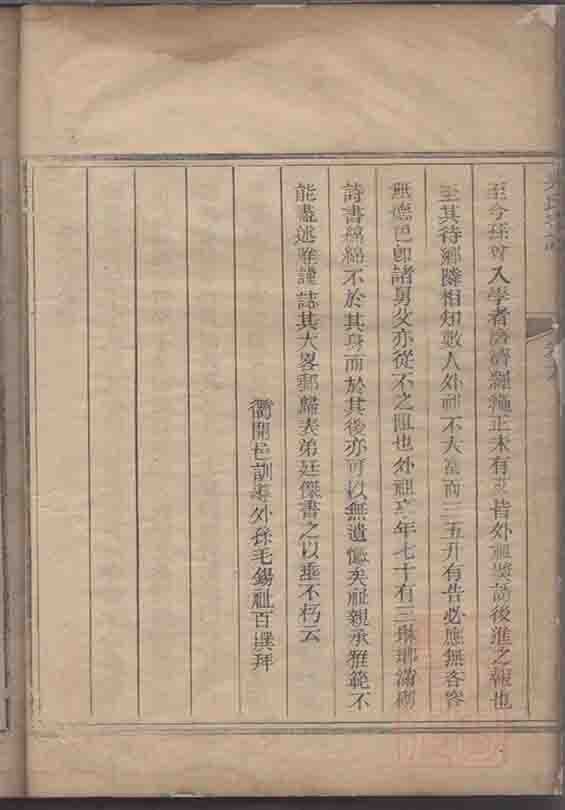 至今孫曾入學者濟濟繩繩正未有艾皆外祖奬諸後進之報也
至其待鄉隣相知數人外祖不大富而三五升有告必應無吝容
無德色卽諸舅父亦從不之阻也外祖享年七十有三琳瑯滿
詩書綿綿不於其身而於其後亦可以無遺憾矣祉親承雅範不
能盡述雖謹誌其大畧郵歸表弟廷傑書之以垂不朽云
衢開邑訓導外孫毛錫祉百撰拜